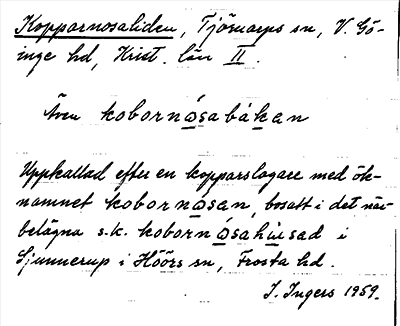 Kopparnosaliden, Tjörnarps sn, V. Gö-
inge hd, Krist. län II.
Även kobornǫ́sabákan
Uppkallad efter en kopparslagare med ök-
namnet kobornǫsan, bosatt i det när-
belägna s.k. kobornǫ́sahu̇sad i
Sjunnerup i Höörs sn, Frosta hd.
I. Ingers 1959.